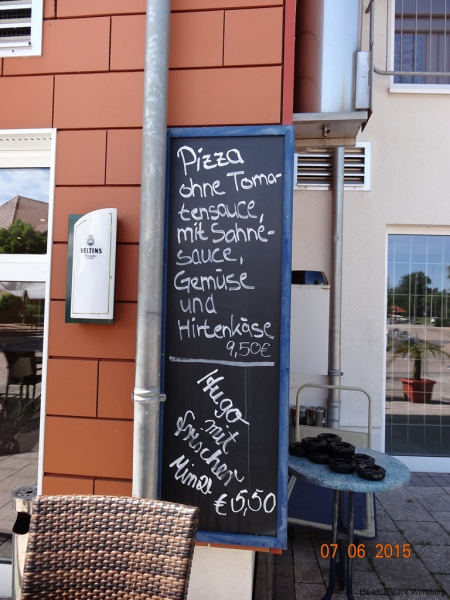 VELTINS
Pizza
ohne Toma-
tensauce,
mit Sahne-
sauce,
Gemüse
und
Hirtenkäse
9,50€
Hugo
mit
frischer
Minze
€5,50
07 06 2015